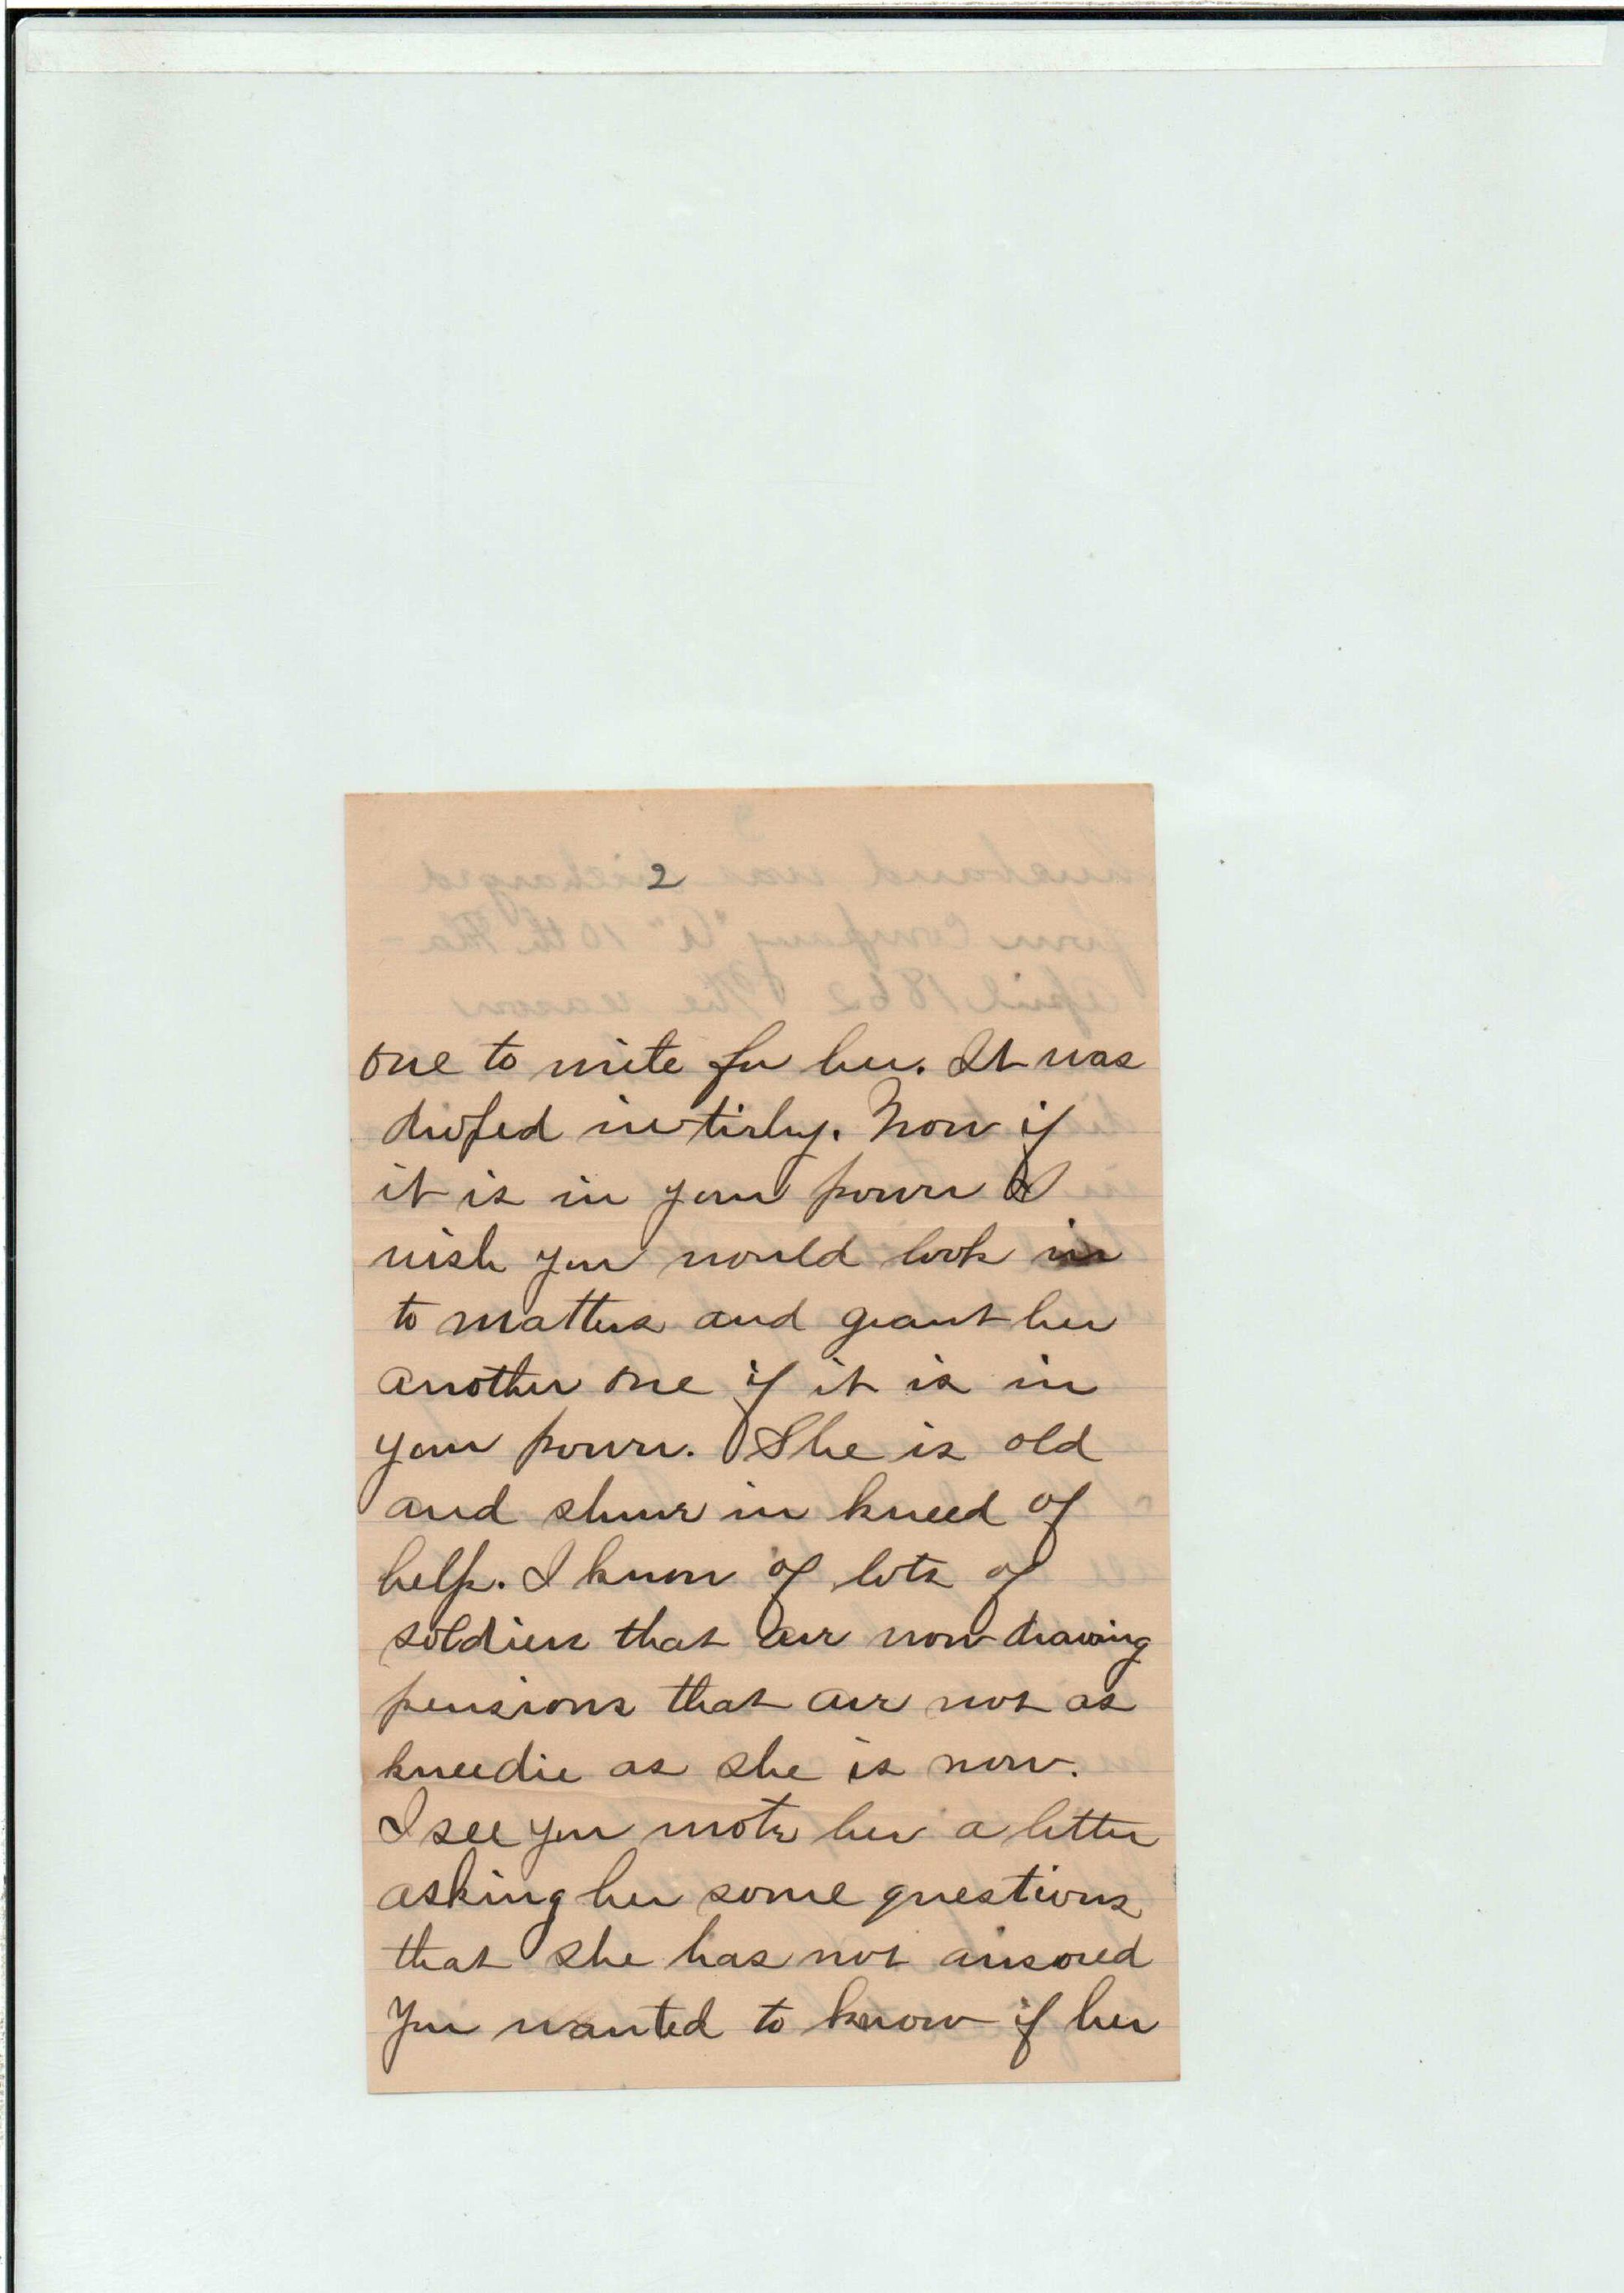 2
one to write for her. It was
droped intirly. Now if
it is in your power I
wish you would look in
to matters and grant her
another one if it is in
your power. She is old
and shure in kneed of
help. I know of lots of
soldiers that are now drawing
pensions that are not as
kneedie as she is now.
I see you wrote her a letter
asking her some questions
that she has not ansored
You wanted to know if her